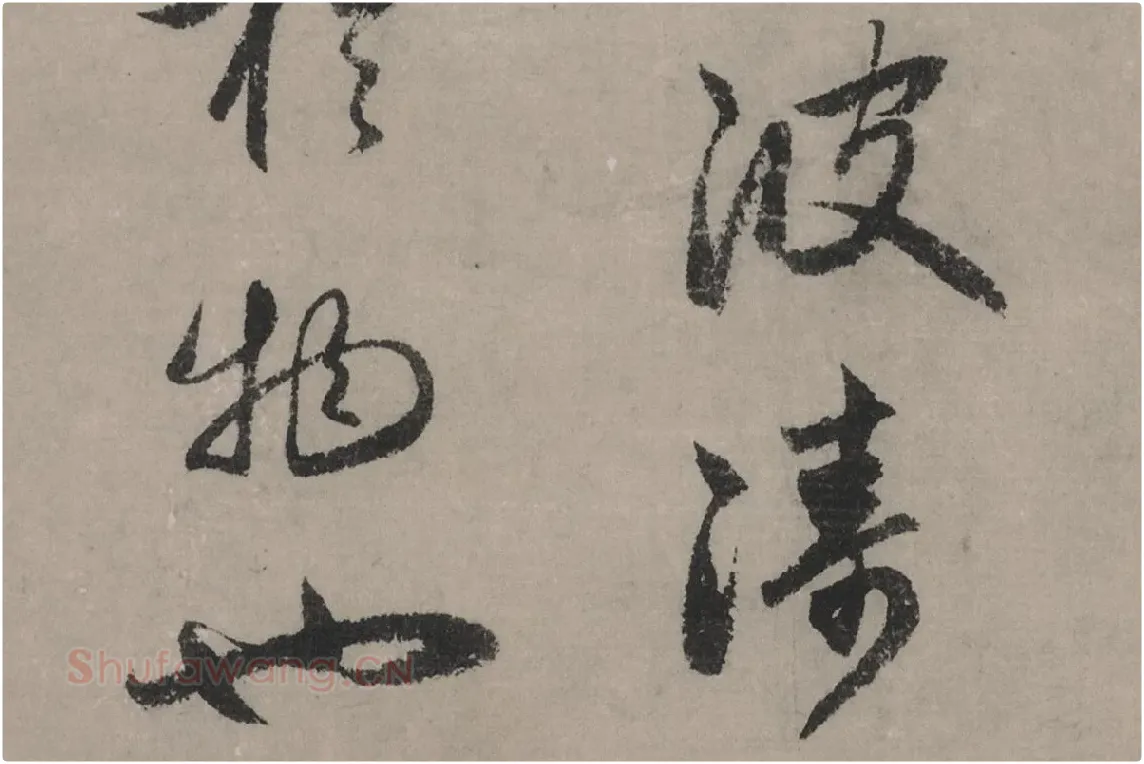 波濤
於物也
Shufawang.CN